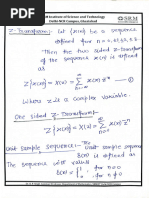 SRM Institute of Science and Technology
Delhi-NCR Campus, Ghaziabad
SRM
Z-Transform: Let {x(n)} be a sequence
defined for n = 0, ±1, ±2, ±3.
Then the two sided Z-transform
of the sequence x(n) is defined
as
Z{x(n)} = X(z) = Σ x(n) z⁻ⁿ — ①
n=-∞
Where z is a complex variable.
One sided Z-Transform-
Z{x(n)} = X(z) = Σ x(n) z⁻ⁿ
n=0
Unit Sample Sequence: The unit sample
sequence δ(n) is defined as
The sequence with values
δ(n) = { 1 for n = 0
0 for n ≠ 0